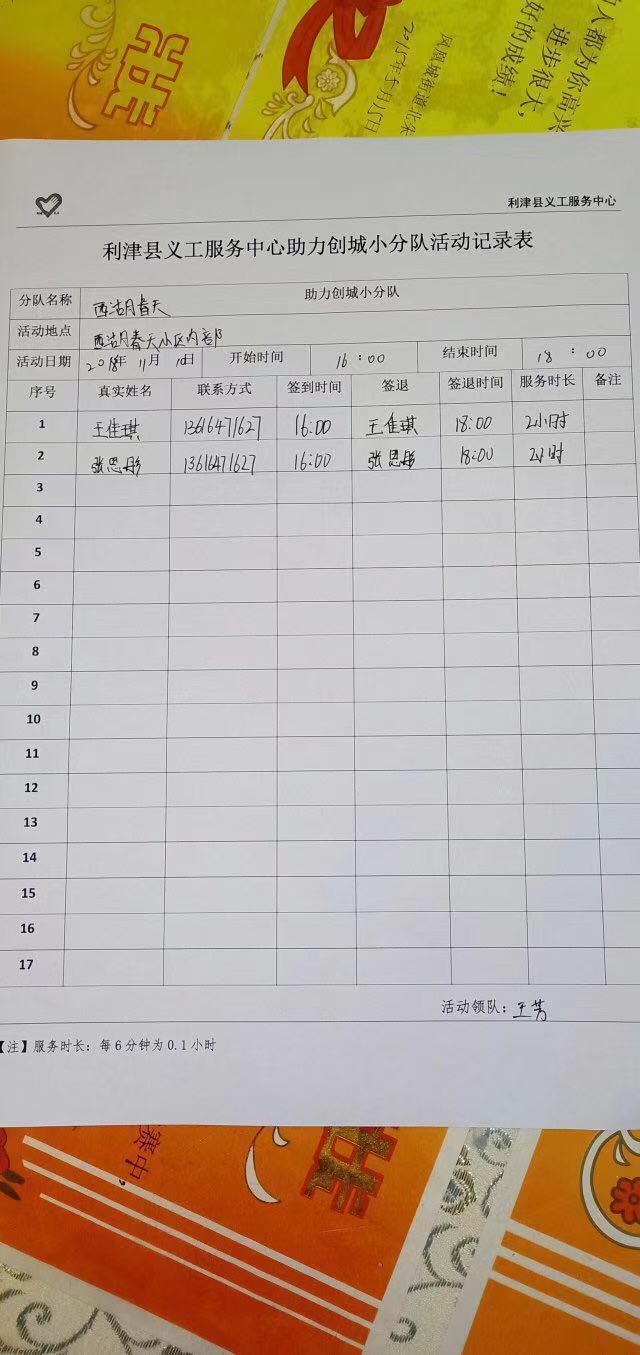 人都为你高兴
进步很大,
好的成绩!
凤凰城街道北宋
2015年5月15日
利津县义工服务中心
利津县义工服务中心助力创城小分队活动记录表
分队名称 西湖春天 助力创城小分队
活动地点 西湖春天小区内部
活动日期 2018年 11月 10日 开始时间 16:00 结束时间 18:00
序号 真实姓名 联系方式 签到时间 签退 签退时间 服务时长 备注
1 王佳琪 13616471627 16:00 王佳琪 18:00 2小时
2 张思彤 13616471627 16:00 张思彤 18:00 2小时
3
4
5
6
7
8
9
10
11
12
13
14
15
16
17
活动领队:王芳
【注】服务时长:每6分钟为0.1小时
赛中,